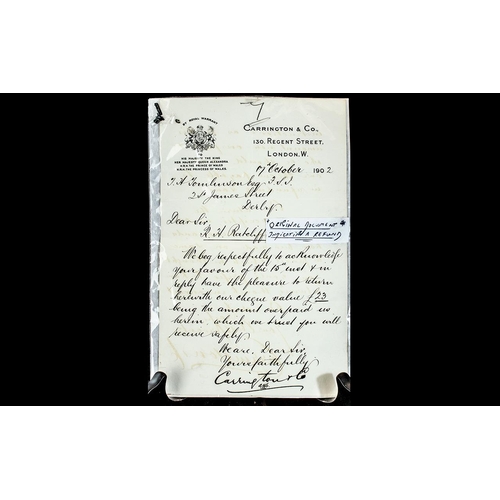 BY ROYAL WARRANT
TO
HIS MAJESTY THE KING
HER MAJESTY QUEEN ALEXANDRA
H.R.H. THE PRINCE OF WALES
H.R.H. THE PRINCESS OF WALES.
CARRINGTON & CO.,
130, REGENT STREET,
LONDON, W.
17 October 1902
T. A. Tomlinson Esq. F.S.I.
2 St James Street
Derby.
Dear Sir,
R. A. Ratcliff
"ORIGINAL DOCUMENT"
INDICATING A REFUND
We beg respectfully to acknowledge
your favour of the 15" inst & in
reply have the pleasure to return
herewith our cheque value £23
being the amount overpaid us
herein, which we trust you will
receive safely.
We are, Dear Sir,
Yours faithfully
Carrington & Co